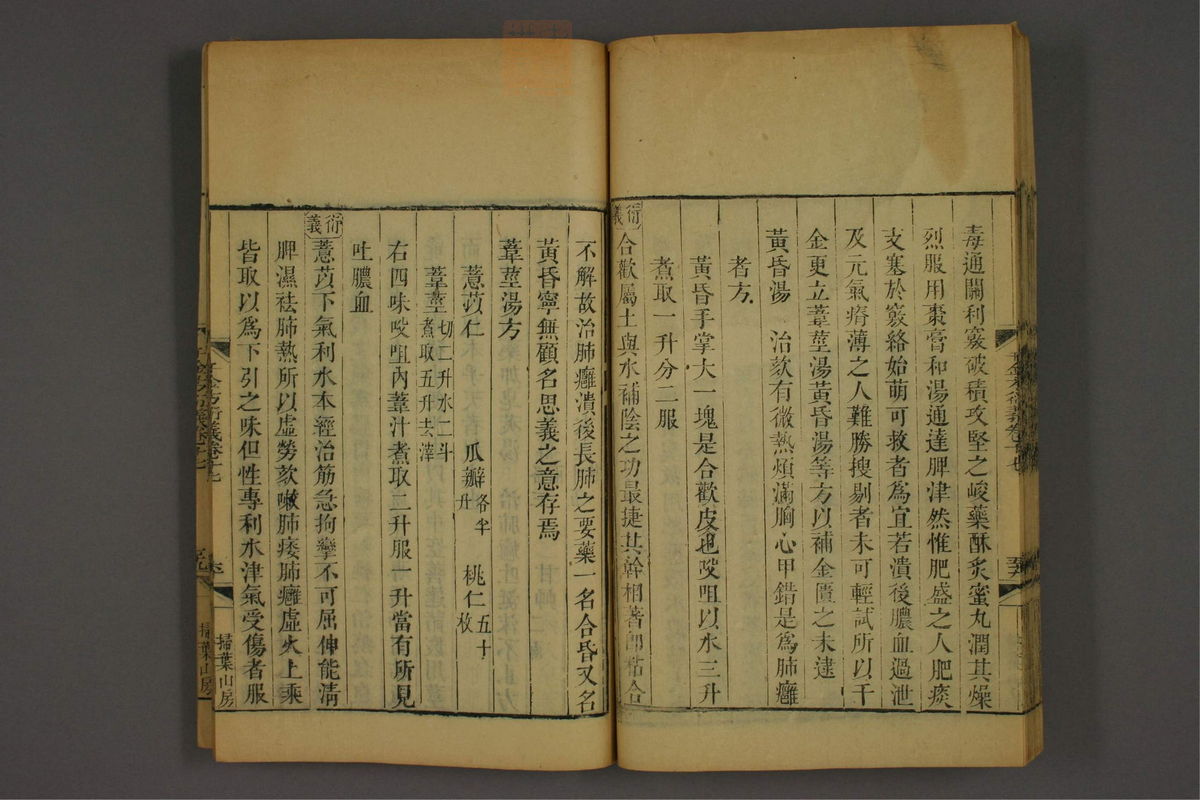 毒通關利竅破積攻堅之峻藥酥炙蜜丸潤其燥
烈服用棗膏和湯通達脾津然惟肥盛之人肥痰
支塞於竅絡始萌可救者為宜若潰後膿血過泄
及元氣瘠薄之人難勝搜剔者未可輕試所以千
金更立葦莖湯黃昏湯等方以補金匱之未逮
黃昏湯 治欬有微熱煩滿胸心甲錯是為肺癰
者方
黃昏手掌大一塊是合歡皮也㕮咀以水三升
煮取一升分二服
衍義 合歡屬土與水補陰之功最捷其幹相著即粘合
不解故治肺癰潰後長肺之要藥一名合昏又名
黃昏寧無顧名思義之意存焉
葦莖湯方
薏苡仁 瓜瓣各半升 桃仁五十枚
葦莖切二升水二斗煮取五升去滓
右四味㕮咀內葦汁煮取二升服一升當有所見
吐膿血
衍義 薏苡下氣利水本經治筋急拘攣不可屈伸能清
脾濕祛肺熱所以虛勞欬嗽肺痿肺癰虛火上乘
皆取以為下引之味但性專利水津氣受傷者服
千金方衍義卷十七
掃葉山房
掃葉山房